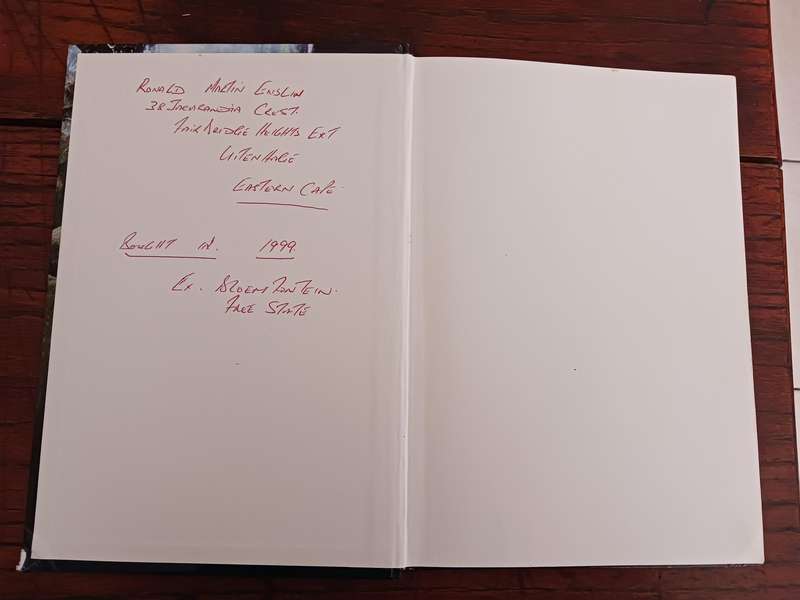 RONALD MARTIN ENSLIN
38 JACARANDIA CREST.
FAIRBRIDGE HEIGHTS EXT
UITENHAGE
EASTERN CAPE
BOUGHT IN. 1999.
EX. BLOEMFONTEIN.
FREE STATE